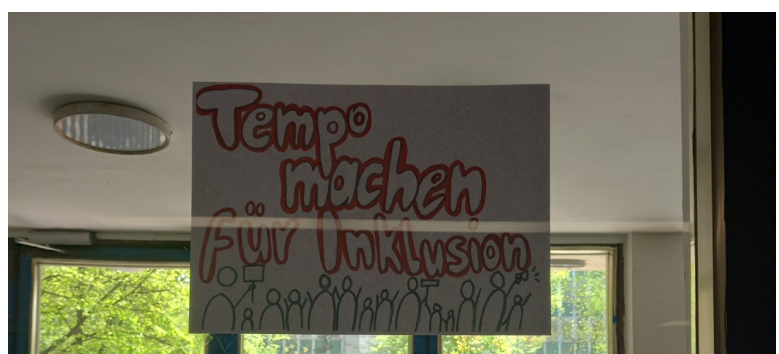 Tempo
machen
für Inklusion